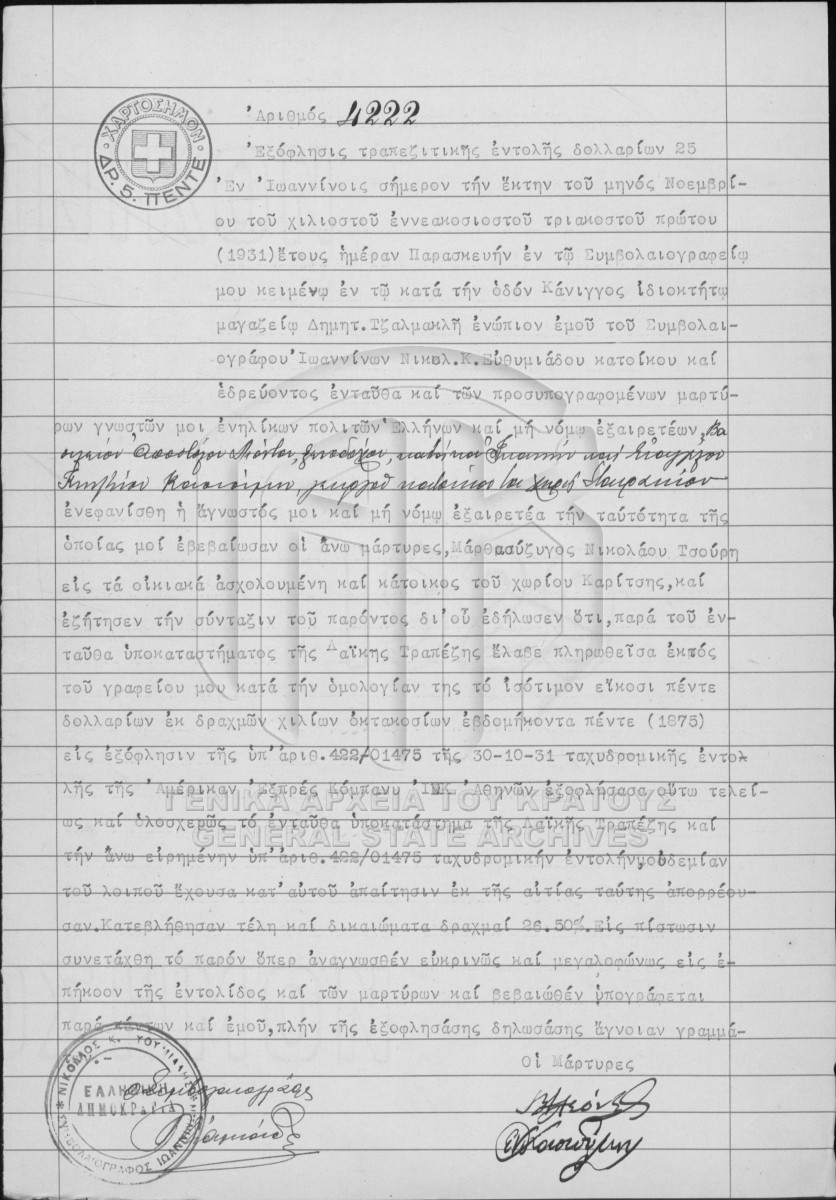 ΧΑΡΤΟΣΗΜΟΝ
ΔΡ. 5. ΠΕΝΤΕ
Ἀριθμός 4222
Ἐξόφλησις τραπεζιτικῆς ἐντολῆς δολλαρίων 25
Ἐν Ἰωαννίνοις σήμερον τήν ἕκτην τοῦ μηνός Νοεμβρί-
ου τοῦ χιλιοστοῦ ἐννεακοσιοστοῦ τριακοστοῦ πρώτου
(1931) ἔτους ἡμέραν Παρασκευήν ἐν τῷ Συμβολαιογραφείῳ
μου κειμένῳ ἐν τῷ κατά τήν ὁδόν Κάνιγγος ἰδιοκτήτῳ
μαγαζείῳ Δημητ.Τζαλμακλῆ ἐνώπιον ἐμοῦ τοῦ Συμβολαι-
ογράφου Ἰωαννίνων Νικολ.Κ.Εὐθυμιάδου κατοίκου καί
ἑδρεύοντος ἐνταῦθα καί τῶν προσυπογραφομένων μαρτύ-
ρων γνωστῶν μοι ἐνηλίκων πολιτῶν Ἑλλήνων καί μή νόμῳ ἐξαιρετέων, Βα
σιλείου Ἀποστόλου
ἐνεφανίσθη ἡ ἄγνωστός μοι καί μή νόμῳ ἐξαιρετέα τήν ταὐτότητα τῆς
ὁποίας μοί ἐβεβαίωσαν οἱ ἄνω μάρτυρες, Μάρθα σύζυγος Νικολάου Τσούρη
εἰς τά οἰκιακά ἀσχολουμένη καί κάτοικος τοῦ χωρίου Καρίτσης, καί
ἐζήτησεν τήν σύνταξιν τοῦ παρόντος δι'οὗ ἐδήλωσεν ὅτι, παρά τοῦ ἐν-
ταῦθα ὑποκαταστήματος τῆς Λαϊκῆς Τραπέζης ἔλαβε πληρωθεῖσα ἐκτός
τοῦ γραφείου μου κατά τήν ὁμολογίαν της τό ἰσότιμον εἴκοσι πέντε
δολλαρίων ἐκ δραχμῶν χιλίων ὀκτακοσίων ἑβδομήκοντα πέντε (1875)
εἰς ἐξόφλησιν τῆς ὑπ'ἀριθ.422/01475 τῆς 30-10-31 ταχυδρομικῆς ἐντο-
λῆς τῆς Ἀμέρικαν Ἐξπρές Κόμπανυ ἸΝΚ Ἀθηνῶν ἐξοφλήσασα οὕτω τελεί-
ως καί ὁλοσχερῶς τό ἐνταῦθα ὑποκατάστημα τῆς Λαϊκῆς Τραπέζης καί
τήν ἄνω εἰρημένην ὑπ'ἀριθ.422/01475 ταχυδρομικήν ἐντολήν, μηδεμίαν
τοῦ λοιποῦ ἔχουσα κατ'αὐτοῦ ἀπαίτησιν ἐκ τῆς αἰτίας ταύτης ἀπορρέου-
σαν. Κατεβλήθησαν τέλη καί δικαιώματα δραχμαί 26.50%. Εἰς πίστωσιν
συνετάχθη τό παρόν ὅπερ ἀναγνωσθέν εὐκρινῶς καί μεγαλοφώνως εἰς ἐ-
πήκοον τῆς ἐντολίδος καί τῶν μαρτύρων καί βεβαιωθέν ὑπογράφεται
παρά πάντων καί ἐμοῦ, πλήν τῆς ἐξοφλησάσης δηλωσάσης ἄγνοιαν γραμμά-
Οἱ Μάρτυρες
ΕΛΛΗΝΙΚΗ
ΔΗΜΟΚΡΑΤΙΑ
ΓΕΝΙΚΑ ΑΡΧΕΙΑ ΤΟΥ ΚΡΑΤΟΥΣ
GENERAL STATE ARCHIVES